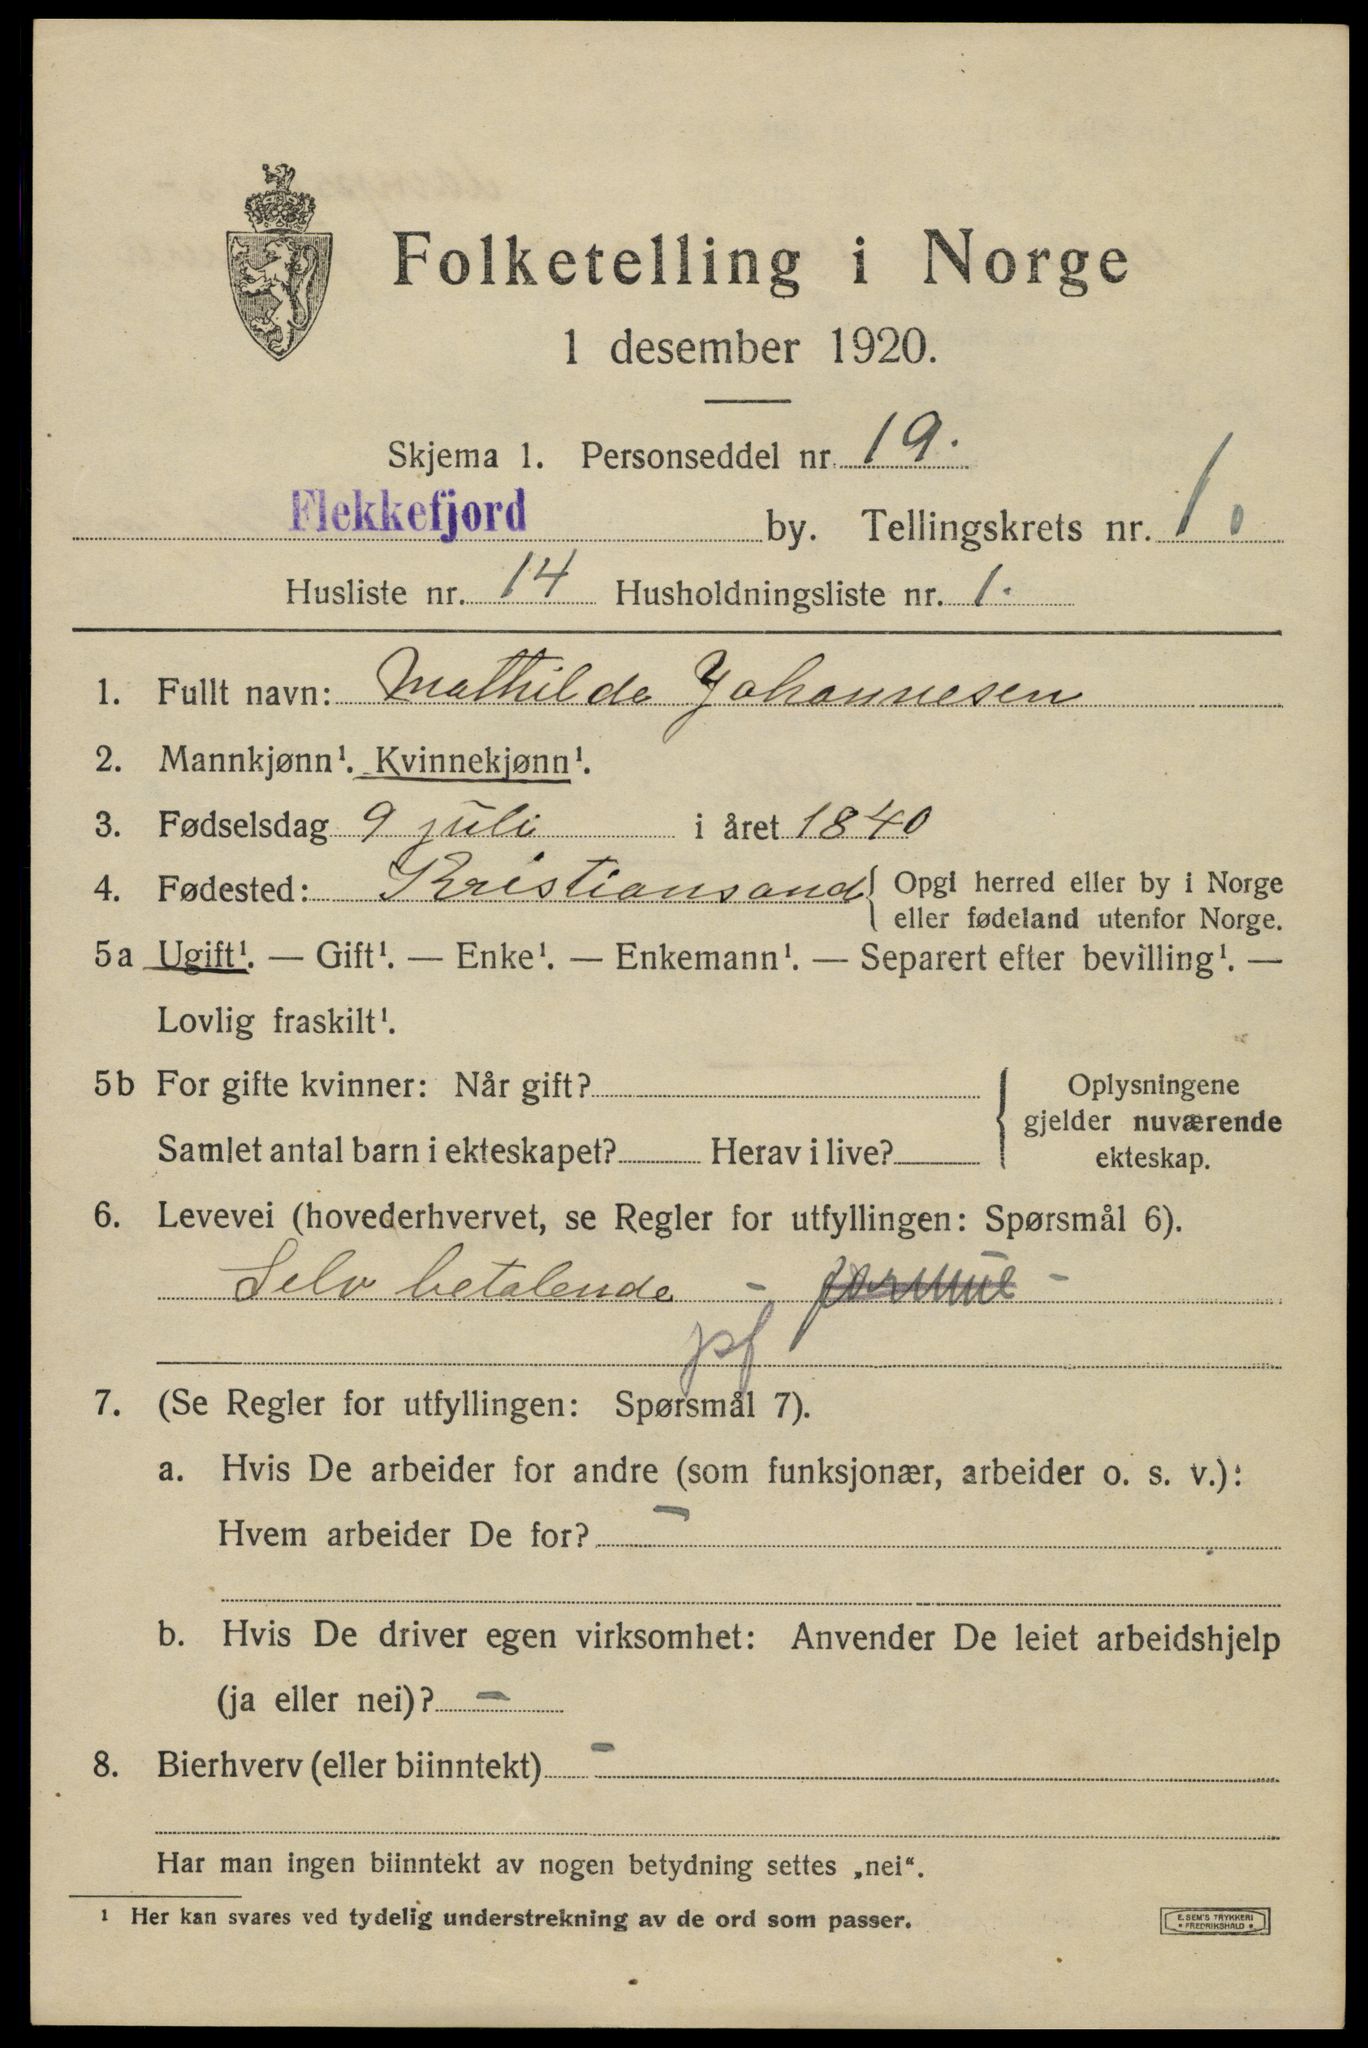 Folketelling i Norge
1 desember 1920.
Skjema 1. Personseddel nr. 19.
Flekkefjord by. Tellingskrets nr. 1.
Husliste nr. 14 Husholdningsliste nr. 1.
1. Fullt navn: Mathilde Johannesen
2. Mannkjønn¹. Kvinnekjønn¹.
3. Fødselsdag 9 juli i året 1840
4. Fødested: Kristiansand { Opgi herred eller by i Norge
eller fødeland utenfor Norge.
5a Ugift¹. — Gift¹. — Enke¹. — Enkemann¹. — Separert efter bevilling¹. —
Lovlig fraskilt¹.
5b For gifte kvinner: Når gift?
Samlet antal barn i ekteskapet? Herav i live?
{ Oplysningene
gjelder nuværende
ekteskap.
6. Levevei (hovederhvervet, se Regler for utfyllingen: Spørsmål 6).
Selv betalende - formue -
pf
7. (Se Regler for utfyllingen: Spørsmål 7).
a. Hvis De arbeider for andre (som funksjonær, arbeider o. s. v.):
Hvem arbeider De for? —
b. Hvis De driver egen virksomhet: Anvender De leiet arbeidshjelp
(ja eller nei)? —
8. Bierhverv (eller biinntekt) -
Har man ingen biinntekt av nogen betydning settes „nei“.
¹ Her kan svares ved tydelig understrekning av de ord som passer.
E. SEM'S TRYKKERI
• FREDRIKSHALD •